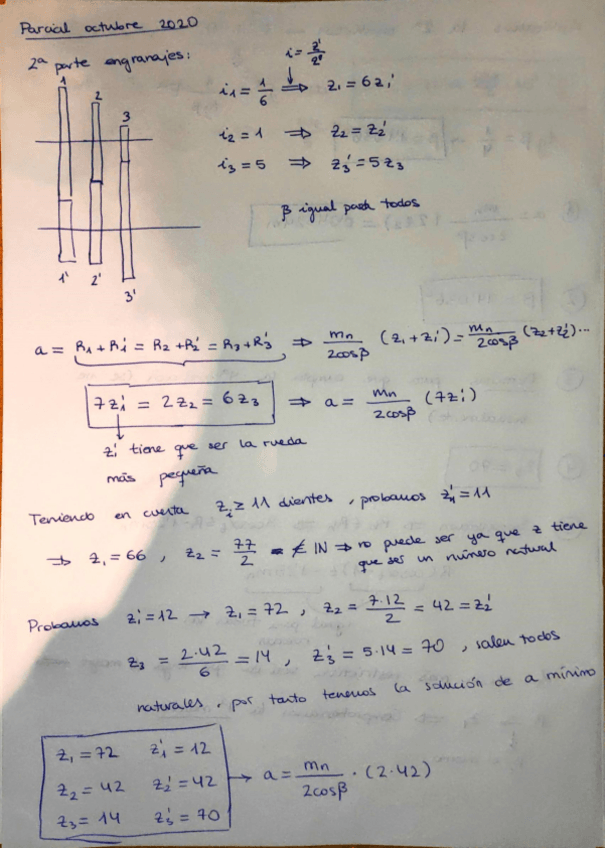 Parcial octubre 2020
2ª parte engranajes:
i = z'/z
1 2 3
1' 2' 3'
i₁ = 1/6 ⟹ z₁ = 6z₁'
i₂ = 1 ⟹ z₂ = z₂'
i₃ = 5 ⟹ z₃' = 5z₃
β igual para todos
a = R₁ + R₁' = R₂ + R₂' = R₃ + R₃' ⟹ mn/2cosβ (z₁ + z₁') = mn/2cosβ (z₂ + z₂') ...
7z₁' = 2z₂ = 6z₃ ⟹ a = mn/2cosβ (7z₁')
z₁' tiene que ser la rueda
más pequeña
Teniendo en cuenta zᵢ ≥ 11 dientes, probamos z₁' = 11
⟹ z₁ = 66, z₂ = 77/2 = ∉ ℕ ⟹ no puede ser ya que z tiene
que ser un número natural
Probamos z₁' = 12 → z₁ = 72, z₂ = 7·12/2 = 42 = z₂'
z₃ = 2·42/6 = 14, z₃' = 5·14 = 70, salen todos
naturales, por tanto tenemos la solución de a mínimo
z₁ = 72 z₁' = 12
z₂ = 42 z₂' = 42 → a = mn/2cosβ · (2·42)
z₃ = 14 z₃' = 70